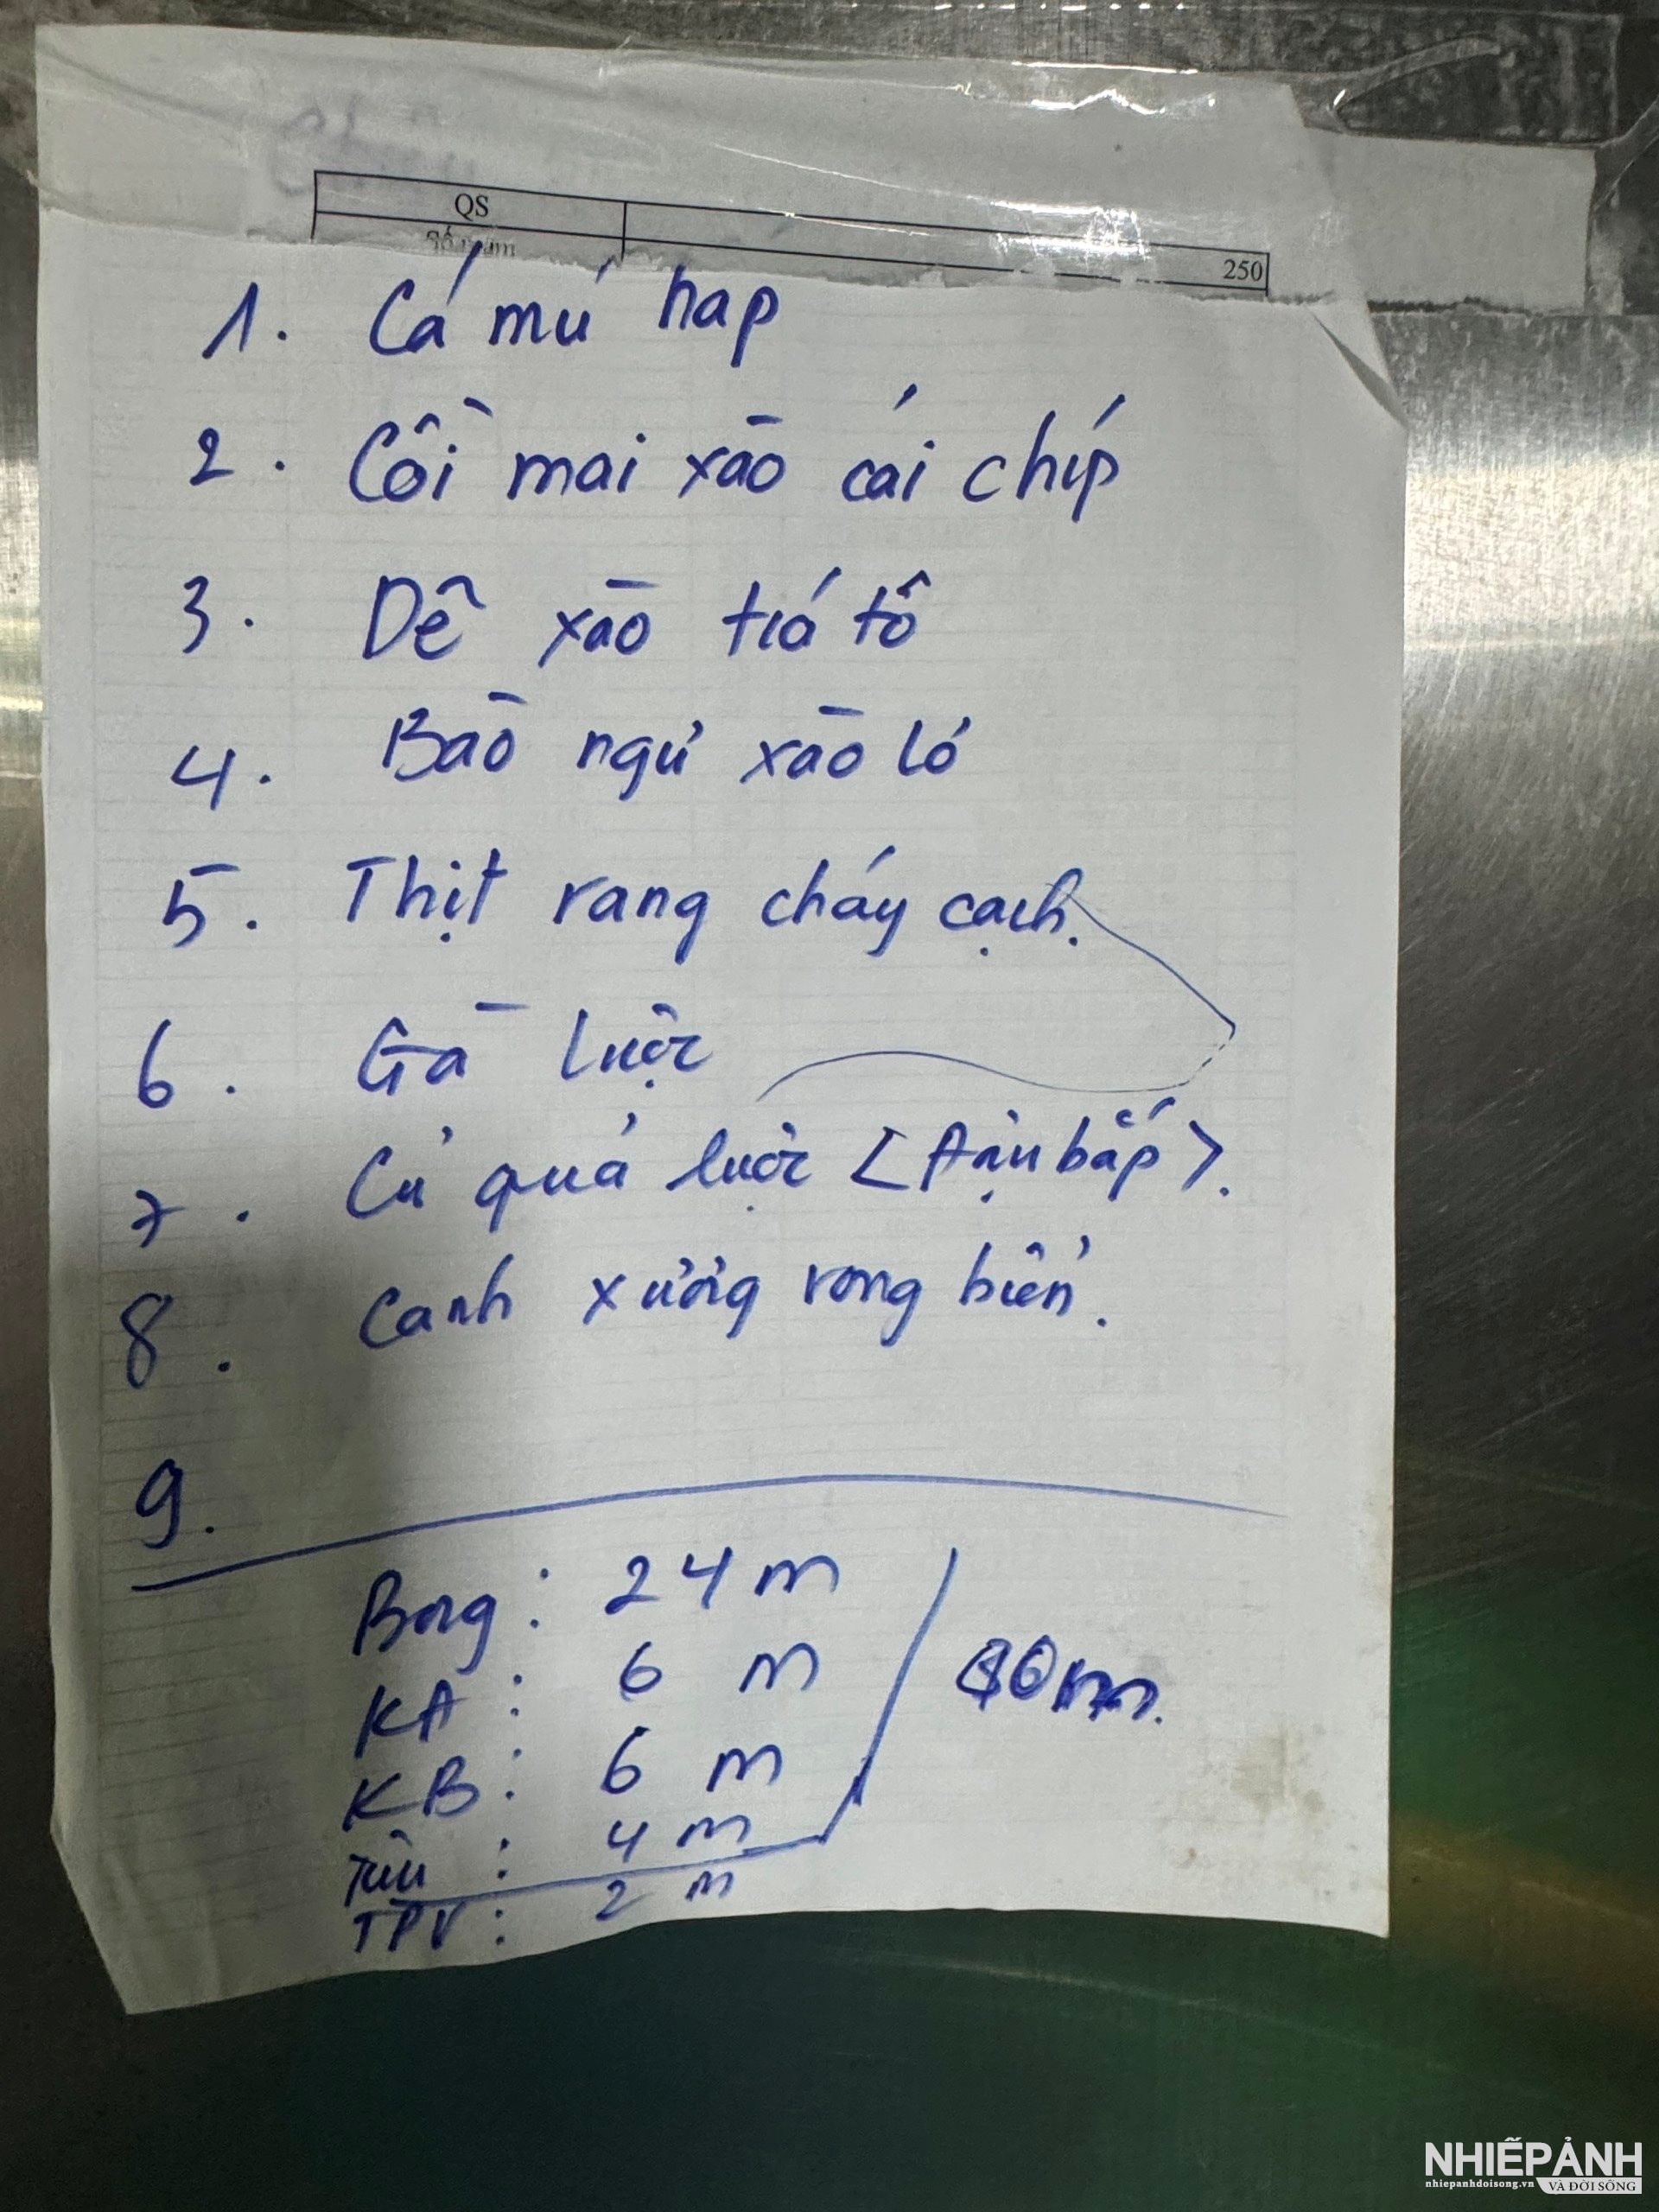 QS
250
1. Cá mú hap
2. Cồi mai xào cái chíp
3. Dê xào tiá tô
4. Bào ngư xào ló
5. Thịt rang cháy cạch.
6. Gà luộc
7. Củ quả luộc <Đậu bắp>.
8. Canh xương rong biển.
9.
Bong: 24 m
KA: 6 m
KB: 6 m
: 4 m
40m.
TPV: 2 m
NHIẾPẢNH
nhiepanhdoisong.vn VÀ ĐỜI SỐNG